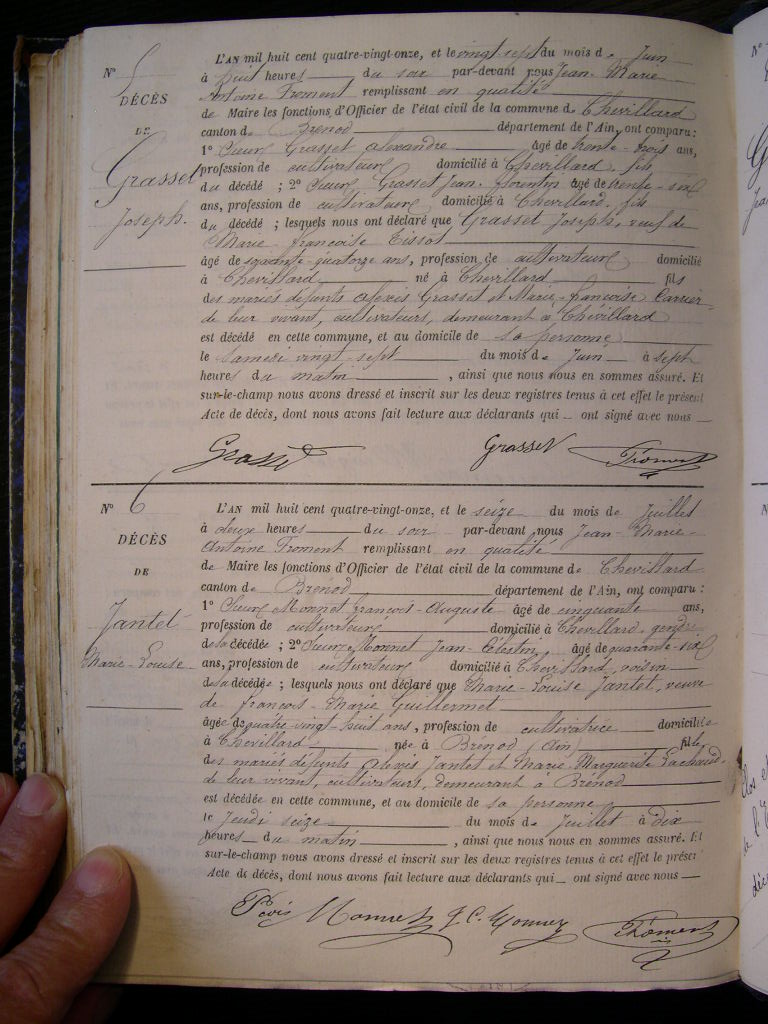 N° 5
DÉCÈS
DE
Grasset
Joseph.
L'AN mil huit cent quatre-vingt-onze, et le vingt sept du mois de Juin
à huit heures du soir par-devant nous Jean-Marie
Antoine Froment remplissant en qualité
de Maire les fonctions d'Officier de l'état civil de la commune de Chevillard
canton de Brénod département de l'Ain, ont comparu :
1° Sieur Grasset alexandre âgé de trente-trois ans,
profession de cultivateur domicilié à Chevillard, fils
du décédé ; 2° Sieur Grasset Jean-florentin âgé de trente-six
ans, profession de cultivateur domicilié à Chevillard, fils
du décédé ; lesquels nous ont déclaré que Grasset Joseph, veuf de
Marie françoise Tissot
âgé de soixante-quatorze ans, profession de cultivateur domicilié
à Chevillard né à Chevillard fils
des mariés défunts alexis Grasset et Marie-françoise Carrier
de leur vivant, cultivateurs, demeurant à Chevillard
est décédé en cette commune, et au domicile de sa personne
le Samedi vingt sept du mois de Juin à sept
heures du matin, ainsi que nous nous en sommes assuré. Et
sur-le-champ nous avons dressé et inscrit sur les deux registres tenus à cet effet le présent
Acte de décès, dont nous avons fait lecture aux déclarants qui ont signé avec nous
Grasset Grasset Froment
N° 6
DÉCÈS
DE
Jantet
Marie-Louise
L'AN mil huit cent quatre-vingt-onze, et le seize du mois de Juillet
à deux heures du soir par-devant nous Jean-Marie-
Antoine Froment remplissant en qualité
de Maire les fonctions d'Officier de l'état civil de la commune de Chevillard
canton de Brénod département de l'Ain, ont comparu :
1° Sieur Monnet françois-Auguste âgé de cinquante ans,
profession de cultivateur domicilié à Chevillard, gendre
de la décédée ; 2° Sieur Monnet Jean-Célestin, âgé de quarante-six
ans, profession de cultivateur domicilié à Chevillard, voisin
de la décédée ; lesquels nous ont déclaré que Marie-Louise Jantet, veuve
de françois-Marie Guillermet
âgée de quatre-vingt-huit ans, profession de cultivatrice domiciliée
à Chevillard née à Brénod (Ain) fille
des mariés défunts alexis Jantet et Marie-Marguerite Pachoud,
de leur vivant, cultivateurs, demeurant à Brénod
est décédée en cette commune, et au domicile de sa personne
le Jeudi seize du mois de Juillet à dix
heures du matin, ainsi que nous nous en sommes assuré. Et
sur-le-champ nous avons dressé et inscrit sur les deux registres tenus à cet effet le présent
Acte de décès, dont nous avons fait lecture aux déclarants qui ont signé avec nous
Monnet J. C. Monnet Froment